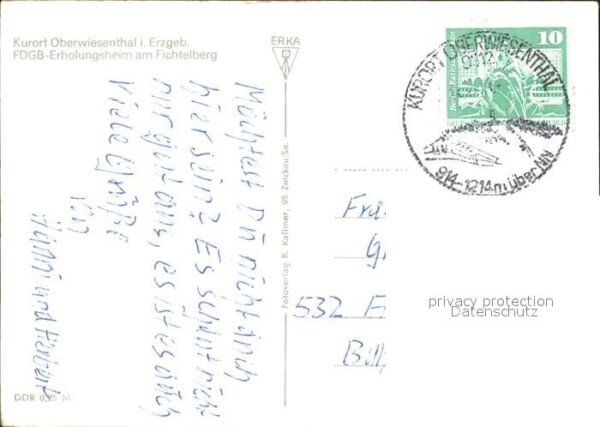 Kurort Oberwiesenthal i. Erzgeb.
FDGB-Erholungsheim am Fichtelberg
Möchtest Du nicht auch
hier sein? Es scheint nicht
nur gut aus, es ist es auch
Viele Grüße
von
und Herbert
DDR 0,25 M
ERKA
Fotoverlag R. Kallmer, 95 Zwickau/Sa.
10
KURORT OBERWIESENTHAL
914-1214 m über NN
Fra
G.
532
privacy protection
Datenschutz